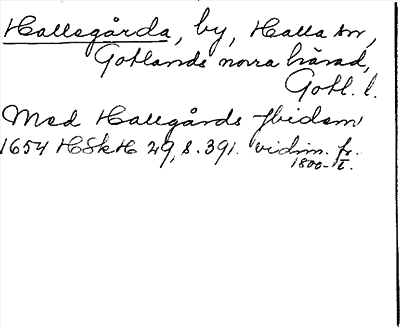 Hallsgårda, by, Halla sn,
Gotlands norra härad,
Gotl. l.
Med Hallgårds
1654 HSkH 29, s. 391. vidim. fr.
1800-t.